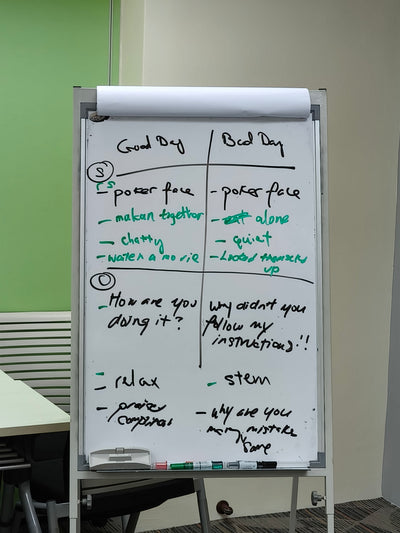 Good Day
Bad Day
S
- poker face
- poker face
- makan together
- alone
- chatty
- quiet
- water a movie
- Locked themselves
up
O
- How are you
doing it?
Why didn't you
follow my
instructions?!!
- relax
- stern
- praises
- why are you
many mistake
same